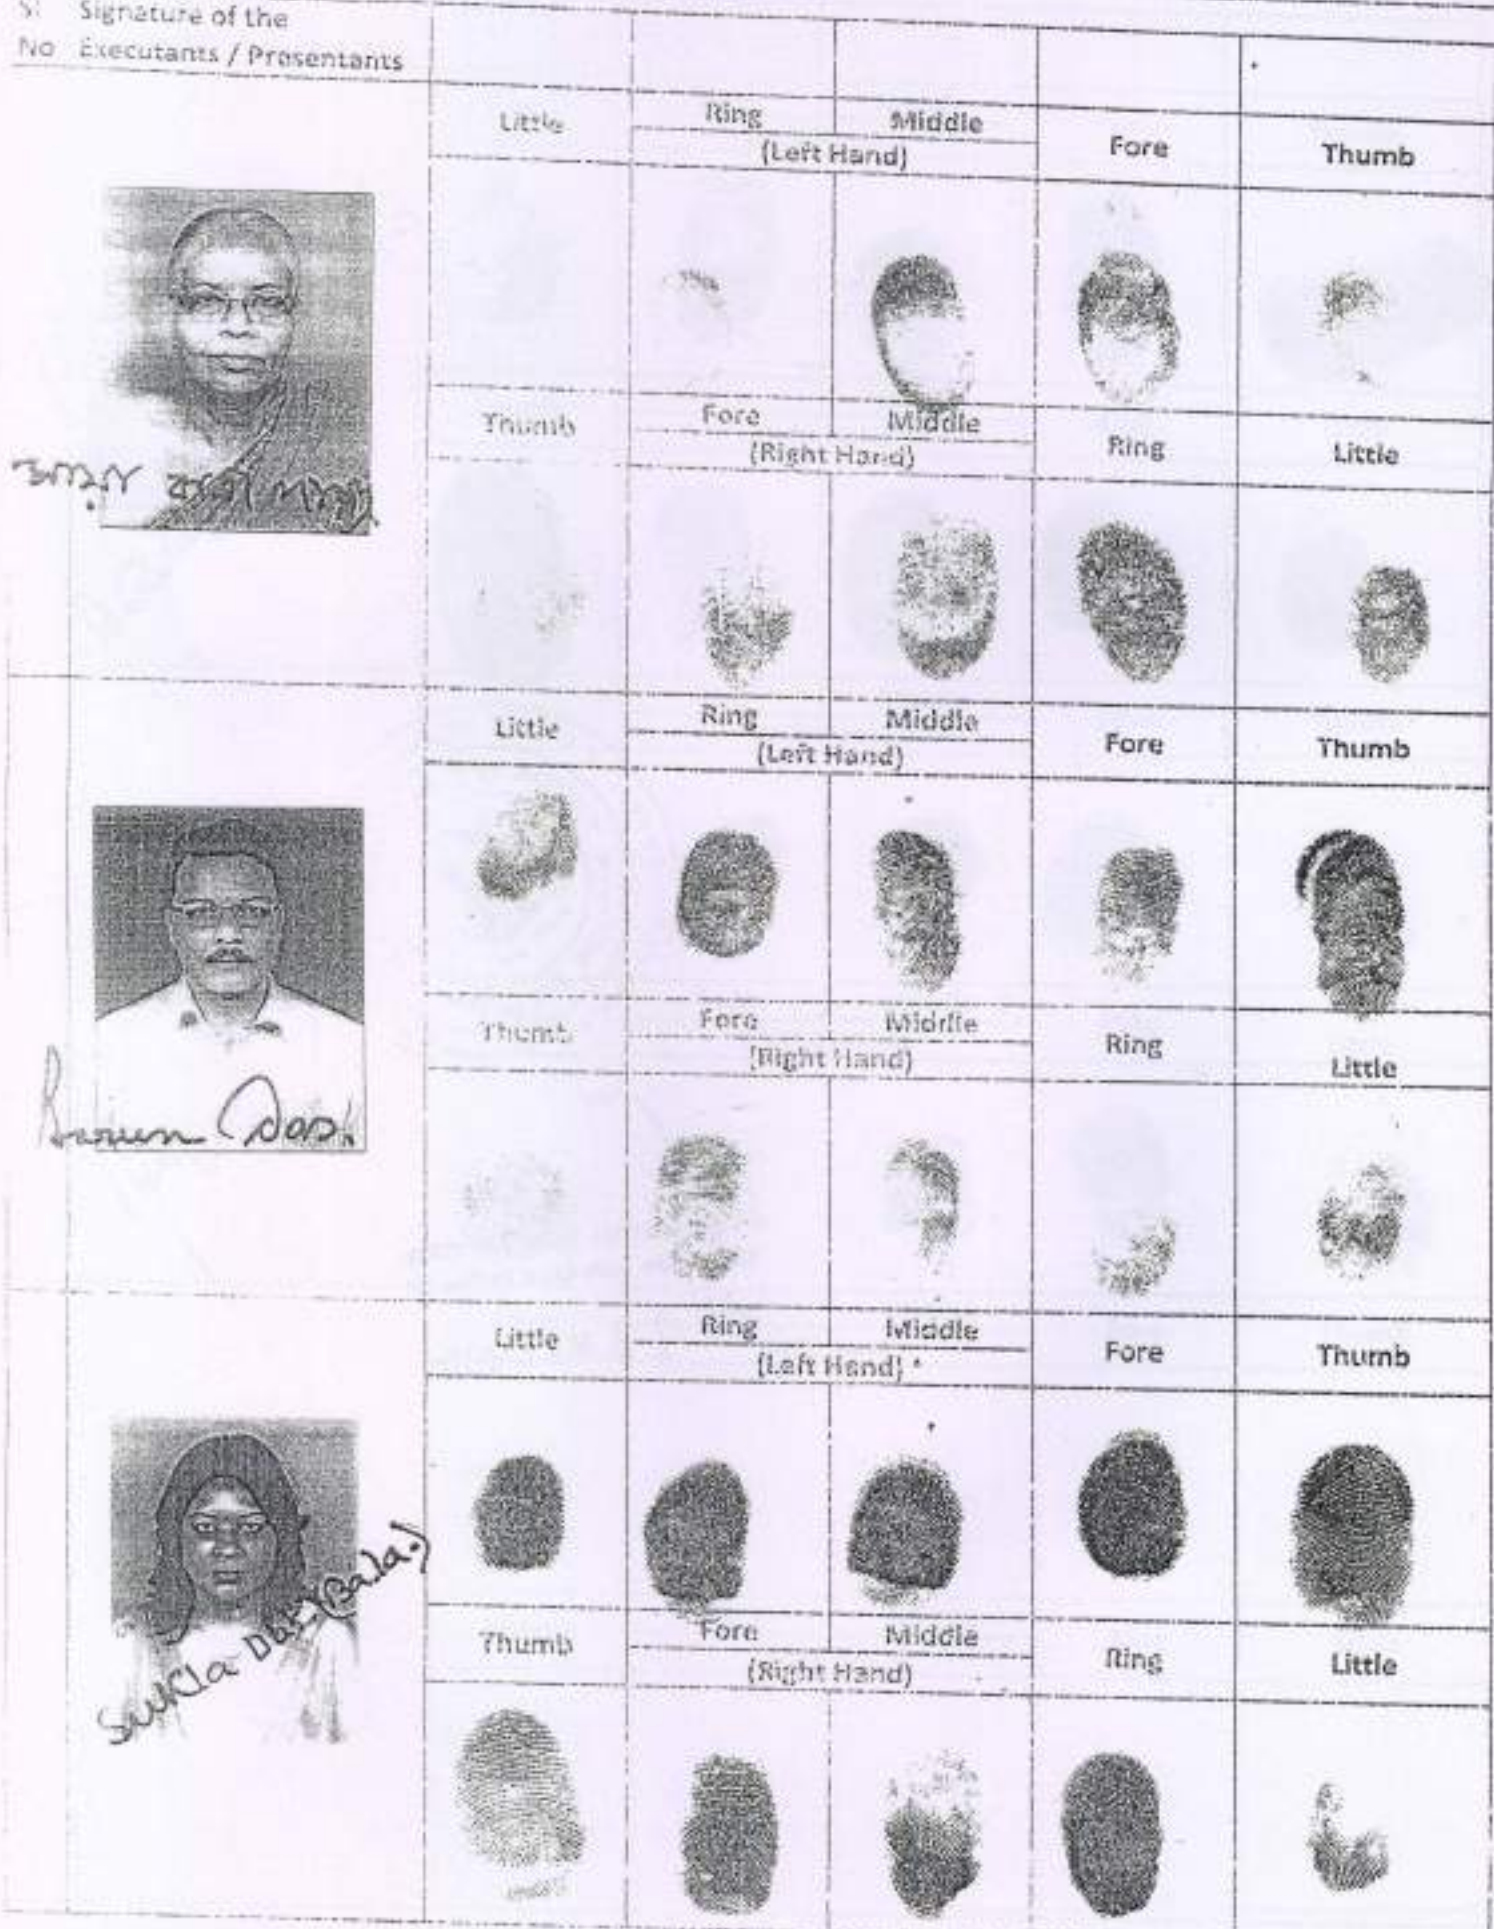 Sl Signature of the
No Executants / Presentants
Little Ring Middle Fore Thumb
(Left Hand)
Thumb Fore Middle Ring Little
(Right Hand)
Little Ring Middle Fore Thumb
(Left Hand)
Thumb Fore Middle Ring Little
(Right Hand)
Barun Das
Little Ring Middle Fore Thumb
(Left Hand)
Thumb Fore Middle Ring Little
(Right Hand)
(Bala.)